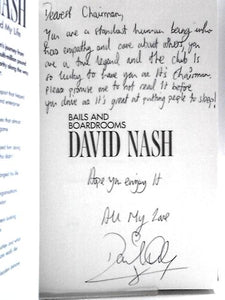 Dearest Chairman,
You are a standout human being who
has empathy and care about others, you
are a true legend and the club is
so lucky to have you as it's Chairman.
please promise me to not read it before
you drive as it's great at putting people to sleep!
BAILS AND
BOARDROOMS
DAVID NASH
Hope you enjoy it
All My Love
NASH
nd My Life